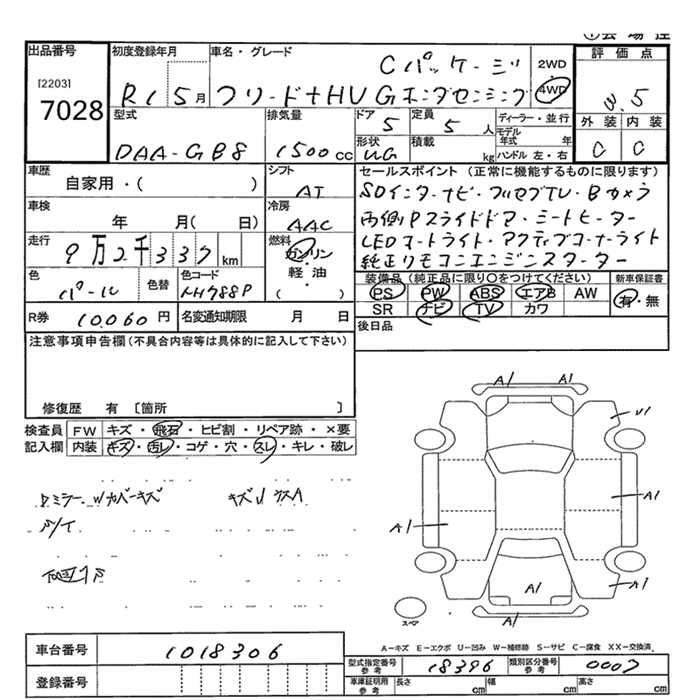 出品番号
[2203]
7028
初度登録年月
R1 5月
車名・グレード
Cパッケージ
フリード+HV Gホンダセンシング
2WD
4WD
評価点
5
外装 内装
C C
型式
DAA-GB8
排気量
1500cc
ドア
5
定員
5人
形状
積載
kg
ディーラー・並行
モデル年式 年
ハンドル 左・右
車歴
自家用・( )
シフト
AT
車検
年 月( 日)
冷房
AAC
走行
9万2千337km
燃料
ガソリン
軽油
( )
色
パール
色替
色コード
NH788P
R券 10,060円
名変通知期限 月 日
セールスポイント(正常に機能するものに限ります)
SDインターナビ・フルセグTV・Bカメラ
両側Pスライドドア・シートヒーター
LEDオートライト・アクティブコーナーライト
純正リモコンエンジンスターター
装備品(純正品に限り○をつけてください)
新車保証書
PS PW ABS エアB AW
SR ナビ TV カワ
有・無
後日品
注意事項申告欄(不具合内容等は具体的に記入して下さい)
修復歴 有〔箇所 〕
検査員記入欄
FW キズ・飛石・ヒビ割・リペア跡・×要
内装 キズ・汚レ・コゲ・穴・スレ・キレ・破レ
ミラーWカバーキズ
キズU カスA
A1 A1
U1
A1
A1
A1
A1
A1
スペア
A-キズ E-エクボ U-凹み W-補修跡 S-サビ C-腐食 XX-交換済
車台番号 1018306
登録番号
型式指定番号 参考 18396
類別区分番号 参考 0007
車庫証明用 参考 長さ cm 幅 cm 高さ cm